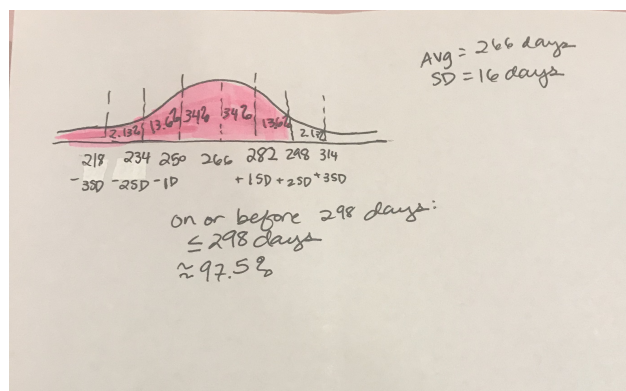 Avg = 266 days
SD = 16 days
2.1% 13.6% 34% 34% 13.6% 2.1%
218 234 250 266 282 298 314
-3SD -2SD -1D +1SD +2SD +3SD
on or before 298 days:
≤ 298 days
≈ 97.5%